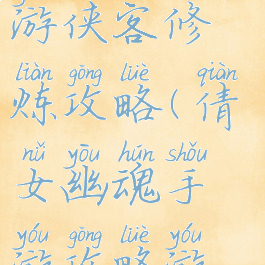 游侠客修
liàn gōng lüè qiàn
炼攻略(倩
nǚ yōu hún shǒu
女幽魂手
yóu gōng lüè yóu
游攻略游